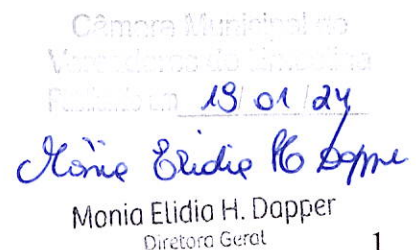 Câmara Municipal de
Vereadores de
Publicado em 19/01/24
Mônia Elidia H Dapper
Monia Elidia H. Dapper
Diretora Geral
1